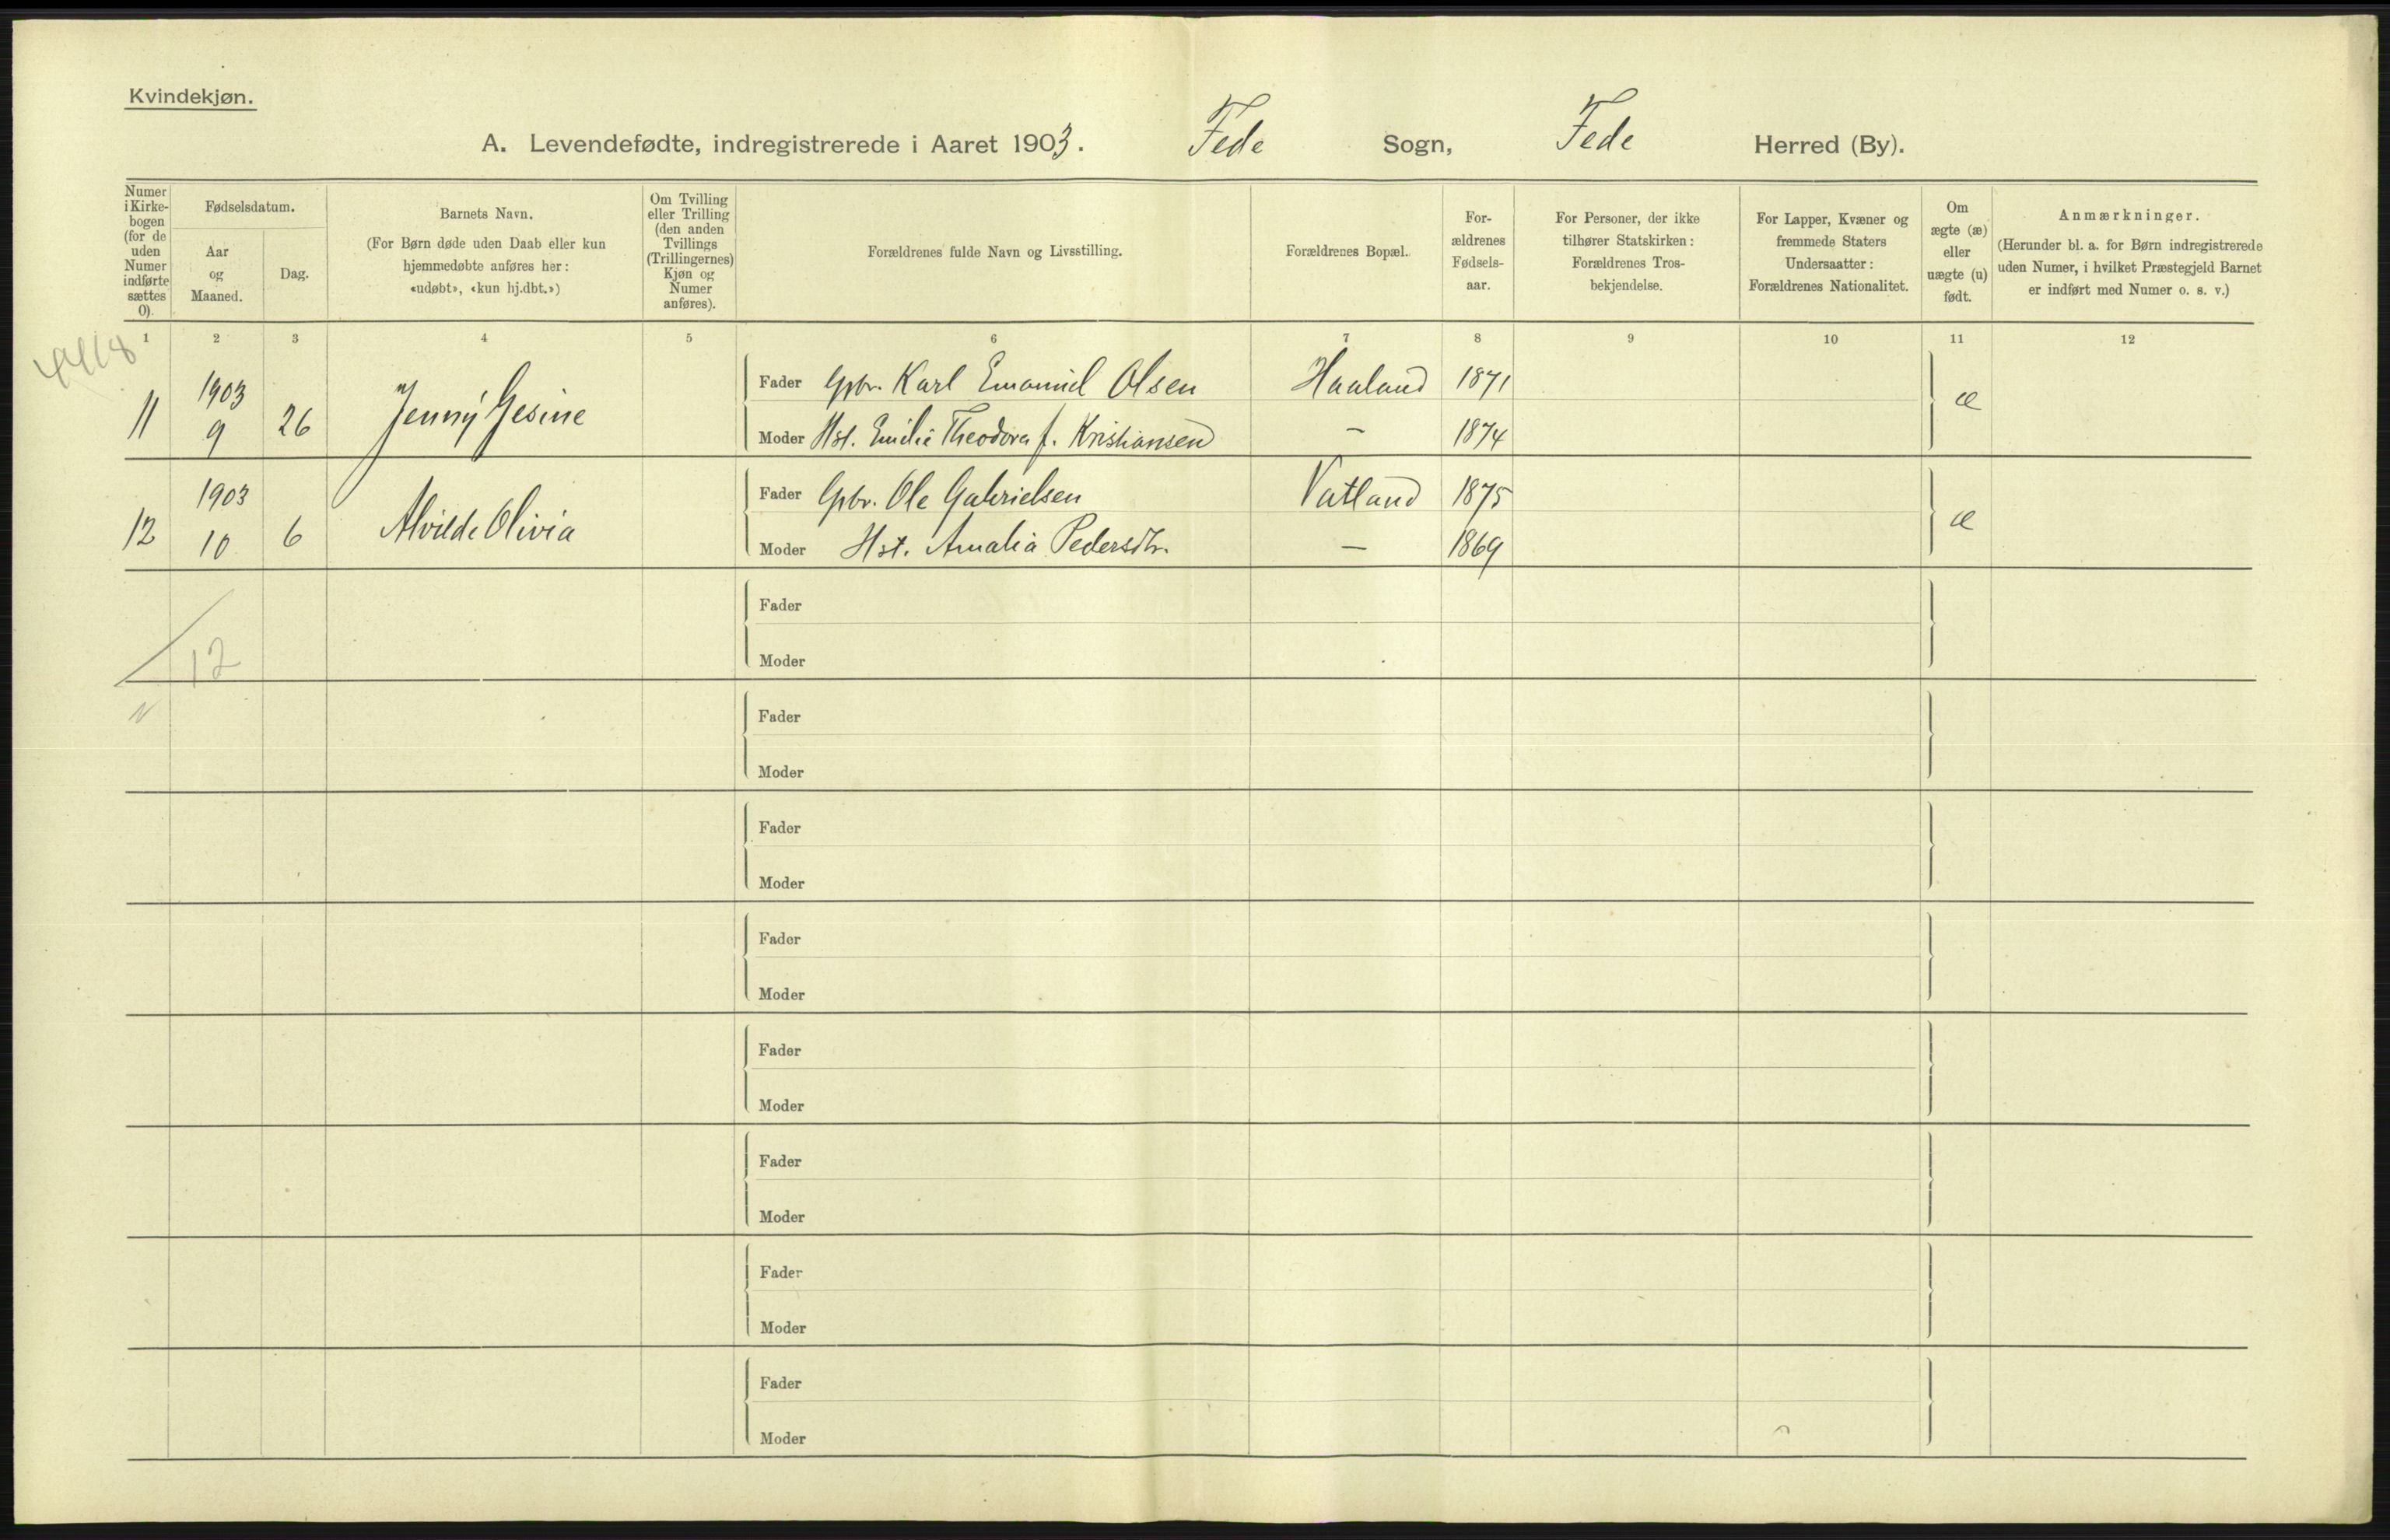 Kvindekjøn.
A. Levendefødte, indregistrerede i Aaret 1903. Fede Sogn, Fede Herred (By).
Numer i Kirkebogen (for de uden Numer indførte sættes 0).
Fødselsdatum.
Aar og Maaned.
Dag.
Barnets Navn.
(For Børn døde uden Daab eller kun
hjemmedøbte anføres her:
«udøbt», «kun hj.dbt.»)
Om Tvilling
eller Trilling
(den anden
Tvillings
(Trillingernes)
Kjøn og
Numer
anføres).
Forældrenes fulde Navn og Livsstilling.
Forældrenes Bopæl.
For-
ældrenes
Fødsels-
aar.
For Personer, der ikke
tilhører Statskirken:
Forældrenes Tros-
bekjendelse.
For Lapper, Kvæner og
fremmede Staters
Undersaatter:
Forældrenes Nationalitet.
Om
ægte (æ)
eller
uægte (u)
født.
Anmærkninger.
(Herunder bl. a. for Børn indregistrerede
uden Numer, i hvilket Præstegjeld Barnet
er indført med Numer o. s. v.)
1 2 3 4 5 6 7 8 9 10 11 12
11 1903 9 26 Jenny Gesine
Fader Gbr. Karl Emanuel Olsen Haaland 1871
Moder Hst. Emilie Theodora f. Kristiansen — 1874
æ
12 1903 10 6 Alvilde Olivia
Fader Gbr. Ole Gabrielsen Vatland 1875
Moder Hst. Amalia Pedersdtr. — 1869
æ
12
Fader
Moder
Fader
Moder
Fader
Moder
Fader
Moder
Fader
Moder
Fader
Moder
Fader
Moder
Fader
Moder